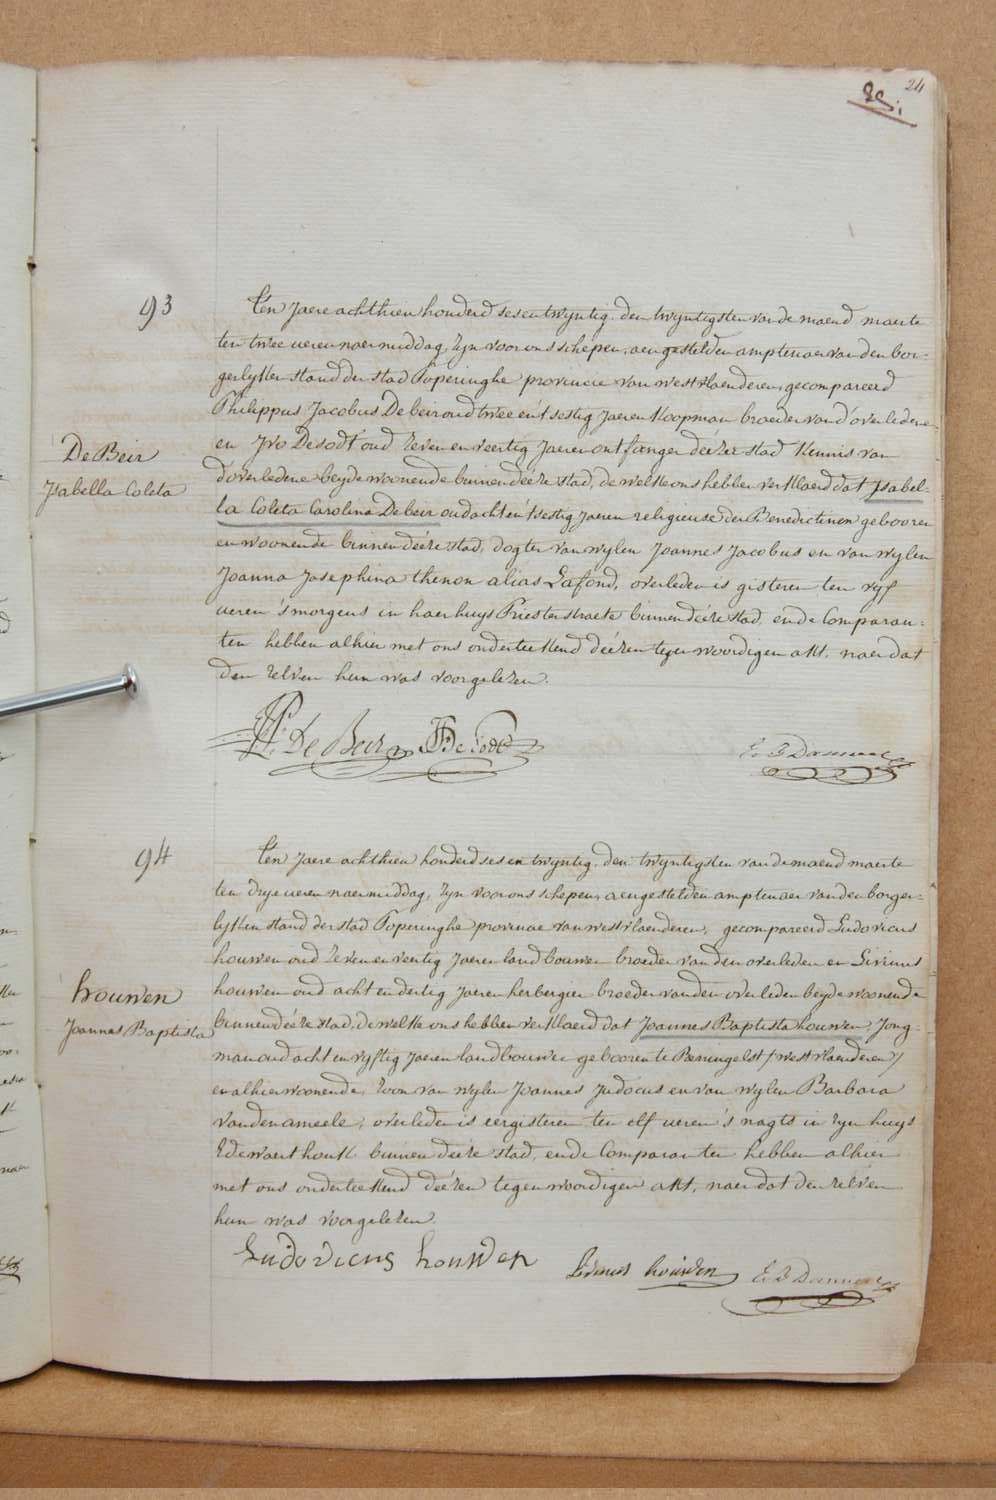 24
93
De Beir
Isabella Coleta
Ten Jaere achthien honderd sesentwyntig den twyntigsten van de maend maerte
ten twee ueren naermiddag, zyn voor ons schepen, aengestelden amptenaer van den bor-
gerlyken stand der stad Poperinghe provincie van westvlaenderen, gecompareerd
Philippus Jacobus De beir oud twee en t'sestig Jaeren Koopman broeder van d'overledene
en Ivo Desodt oud zeven en veertig Jaeren ontfanger deézer stad Kennis van
d'overledene beyde woonende binnen deéze stad, de welke ons hebben verklaerd dat Isabel-
la Coleta Carolina De beir oud acht en t'sestig Jaeren religieuse der Benedictinen gebooren
en woonende binnen deéze stad, dogter van wylen Joannes Jacobus en van wylen
Joanna Josephina thenon alias Lafond, overleden is gisteren ten vyf
ueren 's morgens in haer huys Priesterstraete binnen deéze stad, ende Comparan-
ten hebben alhier met ons onderteekend deézen tegenwoordigen akt, naer dat
den zelven hun was voorgelezen.
De Beir De Sodt
94
houwen
Joannes Baptista
Ten Jaere achthien honderd ses en twyntig den twyntigsten van de maend maerte
ten drye ueren naermiddag, zyn voor ons schepen, aengestelden amptenaer van den borger-
lyken stand der stad Poperinghe provincie van westvlaenderen, gecompareerd Ludovicus
houwen oud zeven en veertig Jaeren landbouwer broeder van den overleden en Livinus
houwen oud acht en dertig Jaeren herbergier broeder van den overleden beyde woonende
binnen deéze stad, de welke ons hebben verklaerd dat Joannes Baptista houwen, Jong-
man oud acht en vyftig Jaeren landbouwer gebooren te Reningelst /westvlaenderen/
en alhier woonende, zoon van wylen Joannes Judocus en van wylen Barbara
vandenameele, overleden is eergisteren ten elf ueren 's nagts in zyn huys
Edewaerthoek binnen deéze stad, ende Comparanten hebben alhier
met ons onderteekend deézen tegenwoordigen akt, naer dat den zelven
hun was voorgelezen.
Ludovicus houwen
Livinus houwen